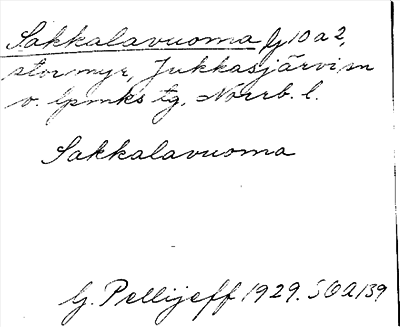 Sakkalavuoma G 10 a 2,
stor myr, Jukkasjärvi sn
o. lpmks tg, Norrb. l.
Sakkalavuoma
G. Pellijeff 1929. SOA 139